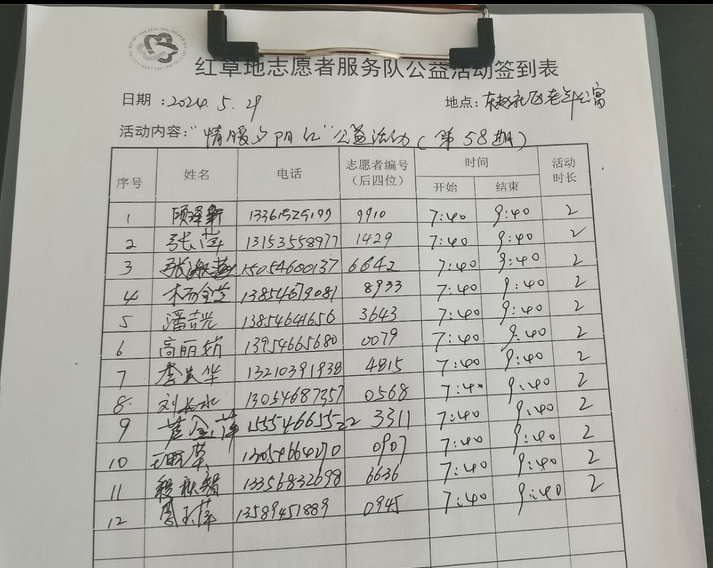 红草地志愿者服务队公益活动签到表
日期：2024.5.29 地点：社区老年公寓
活动内容："情暖夕阳红"公益活动(第58期)
序号 姓名 电话 志愿者编号（后四位） 时间 开始 结束 活动时长
1 顾泽新 9910 7:40 9:40 2
2 张萍 13153558977 1429 7:40 9:40 2
3 15054600137 6642 7:40 9:40 2
4 13854679081 8933 7:40 9:40 2
5 潘吉光 13854641656 3643 7:40 9:40 2
6 高丽娟 13954665680 0079 7:40 9:40 2
7 13210391938 4815 7:40 9:40 2
8 刘长水 13054687357 0568 7:40 9:40 2
9 黄金萍 15554665522 3311 7:40 9:40 2
10 13054664270 0907 7:40 9:40 2
11 13356832698 6636 7:40 9:40 2
12 周玉萍 13589451889 0945 7:40 9:40 2